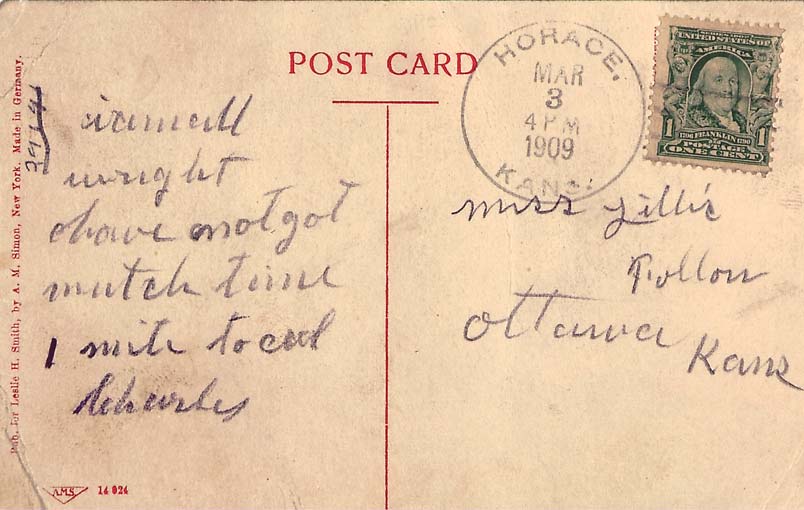 POST CARD
HORACE,
MAR
3
4 PM
1909
KANS.
SERIES 1902
UNITED STATES OF
AMERICA
1 1706 FRANKLIN 1790 1
POSTAGE
ONE CENT
Pub. for Leslie H. Smith, by A. M. Simon, New York. Made in Germany.
wright
have not got
mutch time
Miss Lillie
Follon
Ottawa
Kans
A.M.S. 14 024